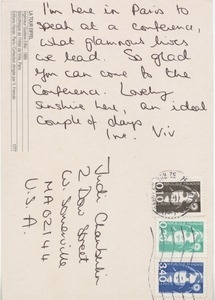 I'm here in Paris to
speak at a conference,
what glamorous lives
we lead. So glad
you can come to the
conference. Lovely
sunshine here, an ideal
couple of days
Viv
LA TOUR EIFFEL
Judi Chamberlin
2 Dow Street
W. Somerville
MA 02144
U.S.A.
0,10
3,40